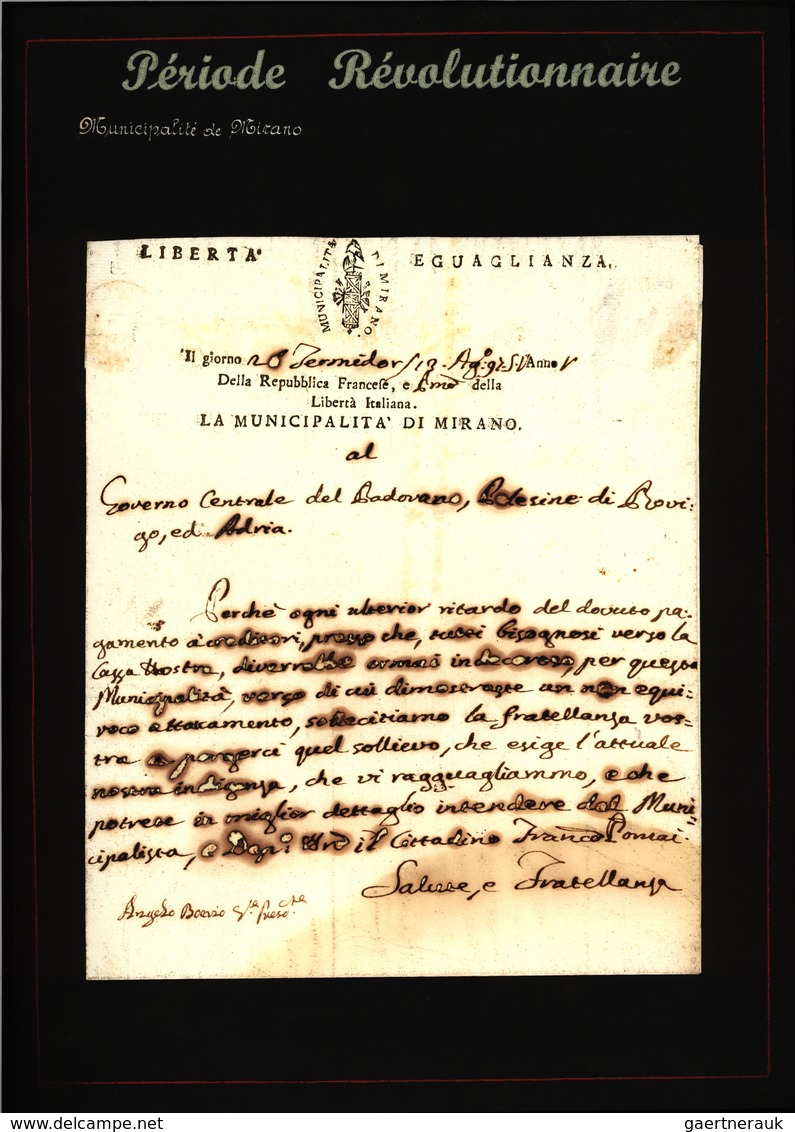 Période Révolutionnaire
Municipalité de Mirano
LIBERTA'
EGUAGLIANZA.
MUNICIPALITA' DI MIRANO.
Il giorno 26 Termidor / 13 Ag.o 97. S.V. Anno V
Della Repubblica Francese, e Pmo della
Libertà Italiana.
LA MUNICIPALITA' DI MIRANO.
al
Governo Centrale del Padovano, Polesine di Rovi=
go, ed Adria.
Perchè ogni ulterior ritardo del dovuto pa=
gamento a' creditori, presso che, tutti bisognosi verso la
Cassa Nostra, diverrebbe ormai indecoroso, per questa
Municipalità, verso di cui dimostraste un non equi=
voco attaccamento, sollecitiamo la fratellanza vos=
tra a porgerci quel sollievo, che esige l'attuale
nostra indigenza, che vi ragguagliammo, e che
potrete in miglior dettaglio intendere dal Muni=
cipalista, e il Cittadino Franco Ponsai.
Salute, e Fratellanza
Angelo Boerio
delcampe.net
gaertnerauk